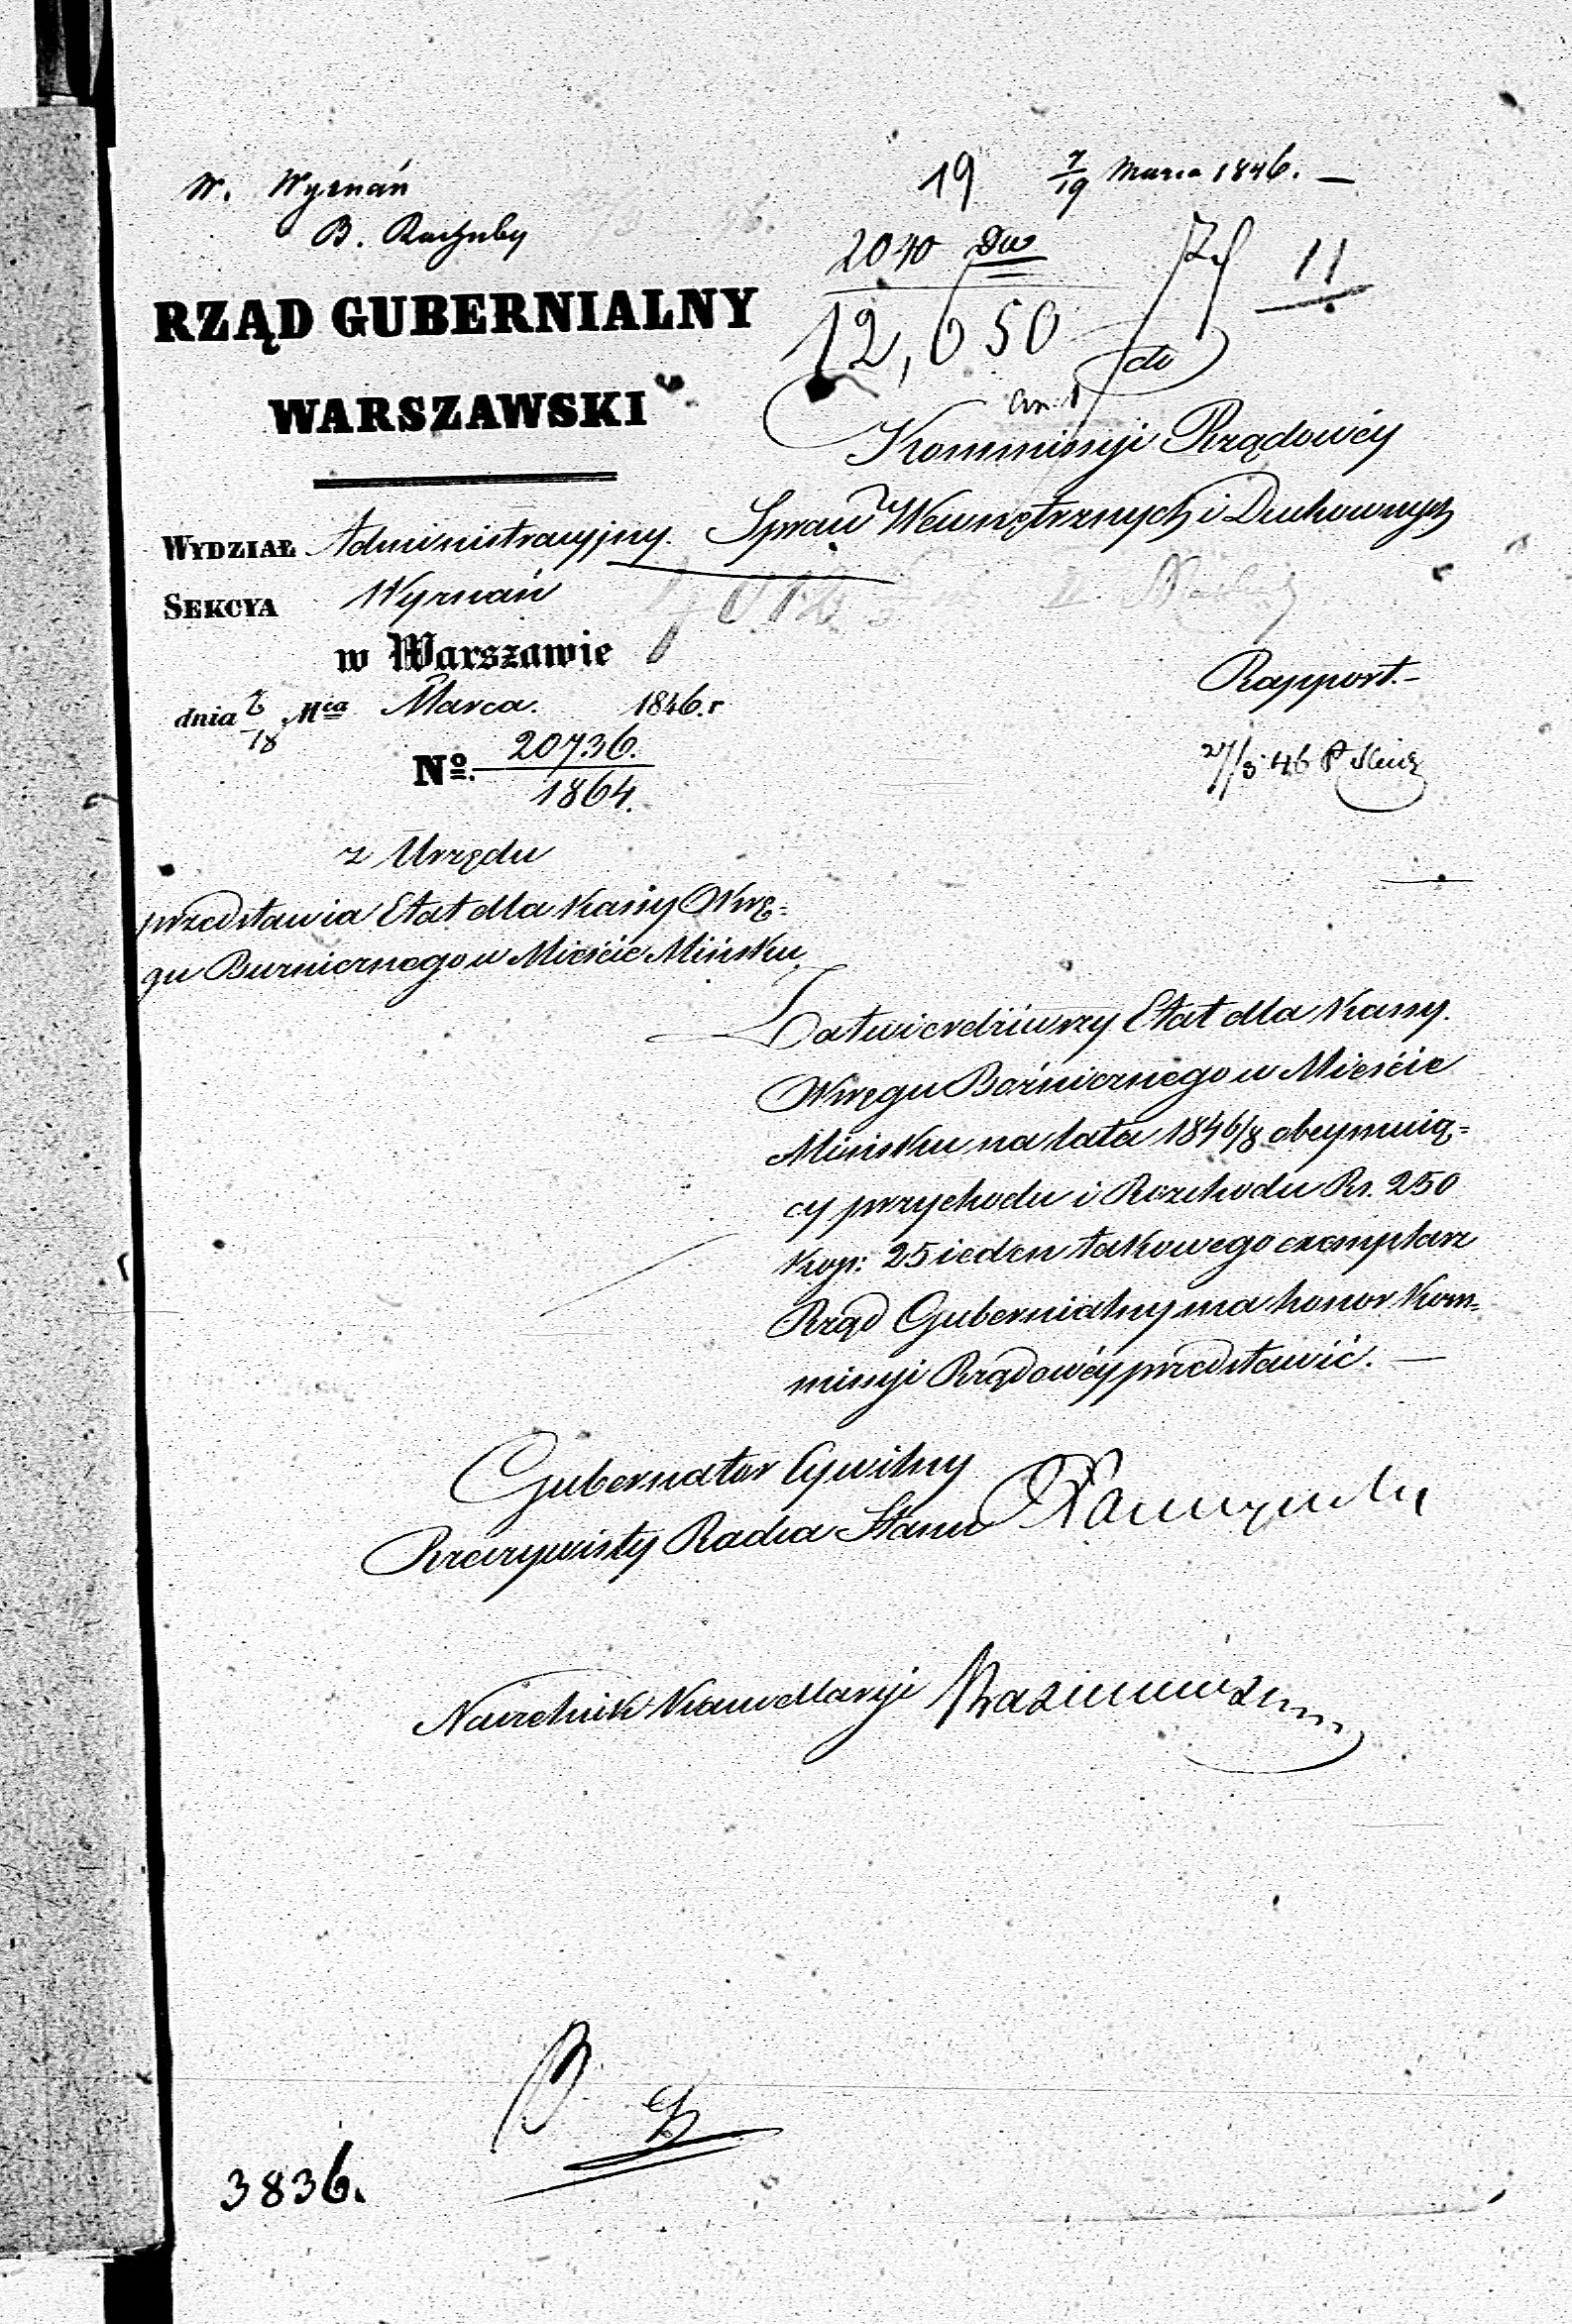 W. Wyznań
B. Rachuby
19 7/19 Marca 1846. —
2040 Dw
12,650
11
RZĄD GUBERNIALNY
WARSZAWSKI
do
an. 1
Kommissyi Rządowéy
Spraw Wewnętrznych i Duchownych
WYDZIAŁ Administracyjny.
SEKCYA Wyznań
w Warszawie
dnia 6/18 Mca Marca. 1846.r
No. 20736.
1864.
Rapport.–
27/3 46
z Urzędu
przedstawia Etat dla Kassy Okrę=
gu Buznicznego w Mieście Mińsku
Zatwierdziwszy Etat dla Kassy
Okręgu Bożnicznego w Mieście
Mińsku na lata 1846/8 obeymuią=
cy przychodu i Rozchodu Rs. 250
Kop: 25 ieden takowego exemplarz
Rząd Gubernialny ma honor Kom=
missyi Rządowéy przedstawić. —
Gubernator Cywilny
Rzeczywisty Radca Stanu
Naczelnik Kancellaryi
3836.